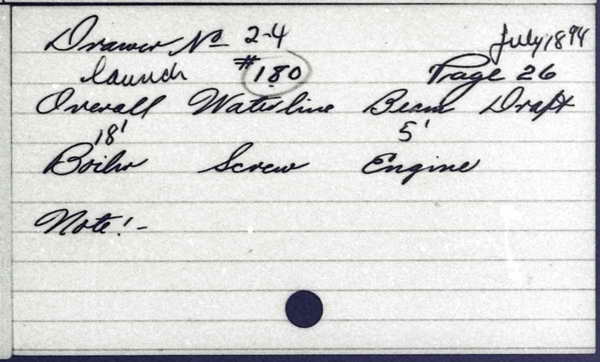 Drawer No 2-4 July 1894
launch #180 Page 26
Overall Waterline Beam Draft
18' 5'
Boiler Screw Engine
Note! -